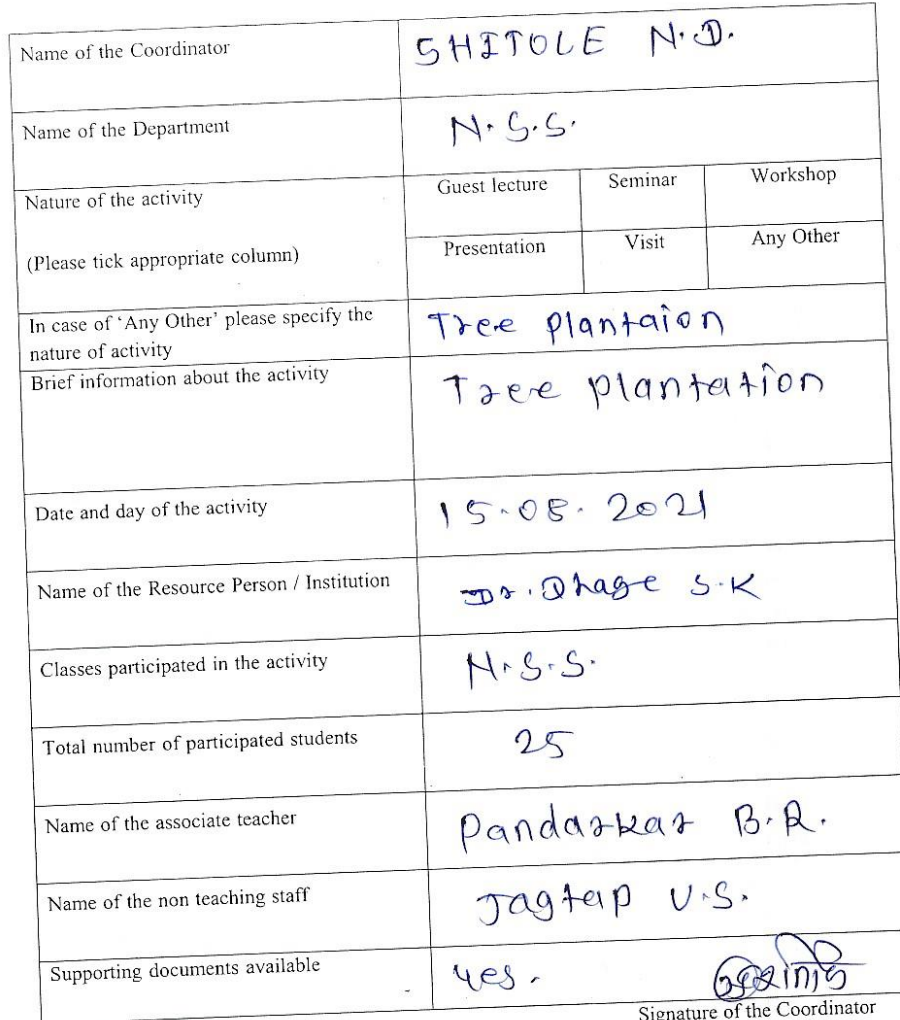 Name of the Coordinator SHITOLE N.D.
Name of the Department N.S.S.
Nature of the activity Guest lecture Seminar Workshop
(Please tick appropriate column) Presentation Visit Any Other
In case of 'Any Other' please specify the Tree plantaion
nature of activity
Brief information about the activity Tree plantation
Date and day of the activity 15.08.2021
Name of the Resource Person / Institution Dr. Dhage S.K
Classes participated in the activity N.S.S.
Total number of participated students 25
Name of the associate teacher Pandarkar B.R.
Name of the non teaching staff Jagtap V.S.
Supporting documents available yes.
Signature of the Coordinator